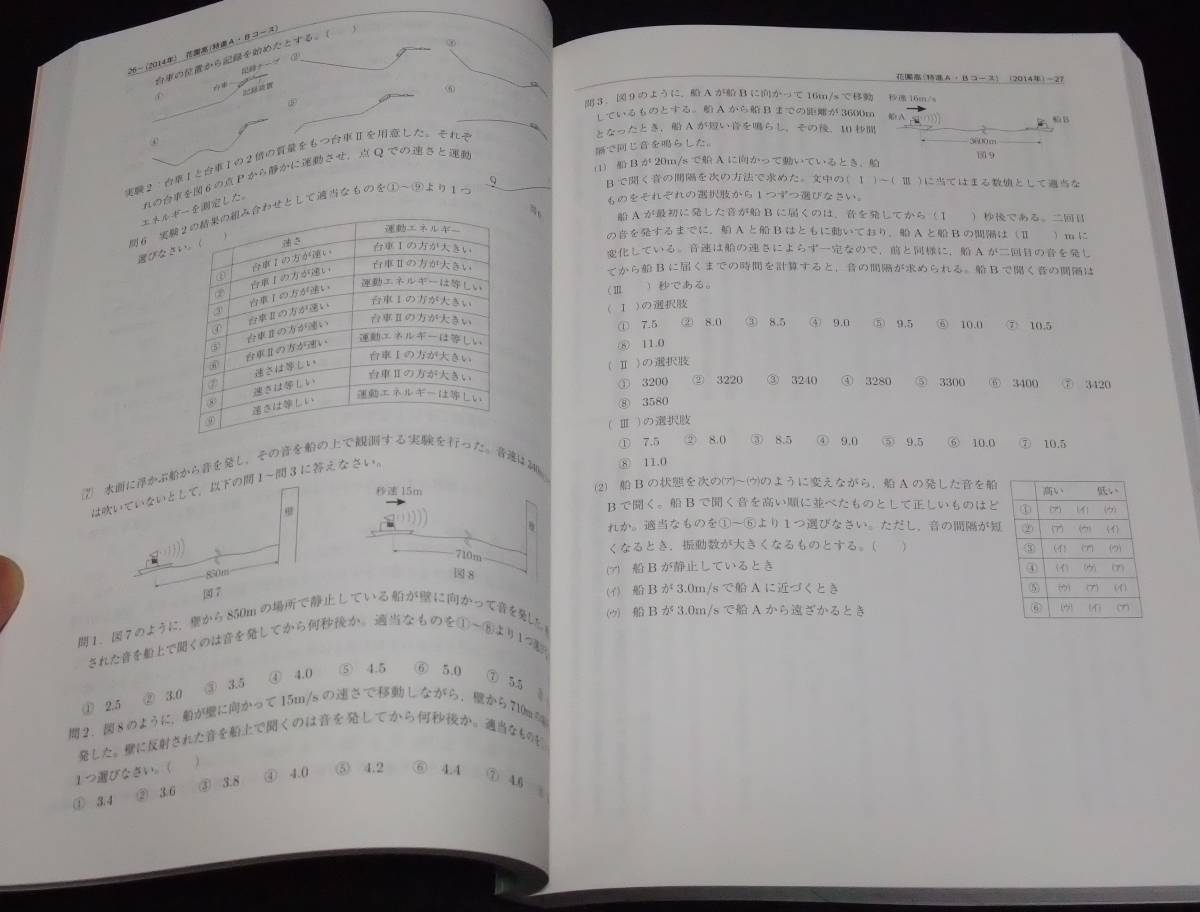 26－(2014年) 花園高(特進A・Bコース)
台車の位置から記録を始めたとする。(　　)
台車
記録テープ
記録装置
①
②
③
④
⑤
⑥
実験2：台車Ⅰと台車Ⅰの2倍の質量をもつ台車Ⅱを用意した。それぞ
れの台車を図6の点Pから静かに運動させ，点Qでの速さと運動
エネルギーを測定した。
Q
図6
問6　実験2の結果の組み合わせとして適当なものを①〜⑨より1つ
選びなさい。(　　)
速さ　運動エネルギー
①　台車Ⅰの方が速い　台車Ⅰの方が大きい
②　台車Ⅰの方が速い　台車Ⅱの方が大きい
③　台車Ⅰの方が速い　運動エネルギーは等しい
④　台車Ⅱの方が速い　台車Ⅰの方が大きい
⑤　台車Ⅱの方が速い　台車Ⅱの方が大きい
⑥　台車Ⅱの方が速い　運動エネルギーは等しい
⑦　速さは等しい　台車Ⅰの方が大きい
⑧　速さは等しい　台車Ⅱの方が大きい
⑨　速さは等しい　運動エネルギーは等しい
[7]　水面に浮かぶ船から音を発し，その音を船の上で観測する実験を行った。音速は340
は吹いていないとして，以下の問1〜問3に答えなさい。
壁
850m
図7
秒速15m
壁
710m
図8
問1．図7のように，壁から850mの場所で静止している船が壁に向かって音を発した。
された音を船上で聞くのは音を発してから何秒後か。適当なものを①〜⑧より1つ選びな
①　2.5　②　3.0　③　3.5　④　4.0　⑤　4.5　⑥　5.0　⑦　5.5
問2．図8のように，船が壁に向かって15m/sの速さで移動しながら，壁から710mの
発した。壁に反射された音を船上で聞くのは音を発してから何秒後か。適当なものを
1つ選びなさい。(　　)
①　3.4　②　3.6　③　3.8　④　4.0　⑤　4.2　⑥　4.4　⑦　4.6
花園高(特進A・Bコース)　(2014年)－27
問3．図9のように，船Aが船Bに向かって16m/sで移動
しているものとする。船Aから船Bまでの距離が3600m
となったとき，船Aが短い音を鳴らし，その後，10秒間
隔で同じ音を鳴らした。
秒速16m/s
船A
船B
3600m
図9
(1)　船Bが20m/sで船Aに向かって動いているとき，船
Bで聞く音の間隔を次の方法で求めた。文中の(　Ⅰ　)〜(　Ⅲ　)に当てはまる数値として適当な
ものをそれぞれの選択肢から1つずつ選びなさい。
船Aが最初に発した音が船Bに届くのは，音を発してから(Ⅰ　　)秒後である。二回目
の音を発するまでに，船Aと船Bはともに動いており，船Aと船Bの間隔は(Ⅱ　　)mに
変化している。音速は船の速さによらず一定なので，前と同様に，船Aが二回目の音を発し
てから船Bに届くまでの時間を計算すると，音の間隔が求められる。船Bで聞く音の間隔は
(Ⅲ　　)秒である。
(　Ⅰ　)の選択肢
①　7.5　②　8.0　③　8.5　④　9.0　⑤　9.5　⑥　10.0　⑦　10.5
⑧　11.0
(　Ⅱ　)の選択肢
①　3200　②　3220　③　3240　④　3280　⑤　3300　⑥　3400　⑦　3420
⑧　3580
(　Ⅲ　)の選択肢
①　7.5　②　8.0　③　8.5　④　9.0　⑤　9.5　⑥　10.0　⑦　10.5
⑧　11.0
(2)　船Bの状態を次の(ア)〜(ウ)のように変えながら，船Aの発した音を船
Bで聞く。船Bで聞く音を高い順に並べたものとして正しいものはど
れか。適当なものを①〜⑥より1つ選びなさい。ただし，音の間隔が短
くなるとき，振動数が大きくなるものとする。(　　)
(ア)　船Bが静止しているとき
(イ)　船Bが3.0m/sで船Aに近づくとき
(ウ)　船Bが3.0m/sで船Aから遠ざかるとき
高い　低い
①　(ア)　(イ)　(ウ)
②　(ア)　(ウ)　(イ)
③　(イ)　(ア)　(ウ)
④　(イ)　(ウ)　(ア)
⑤　(ウ)　(ア)　(イ)
⑥　(ウ)　(イ)　(ア)